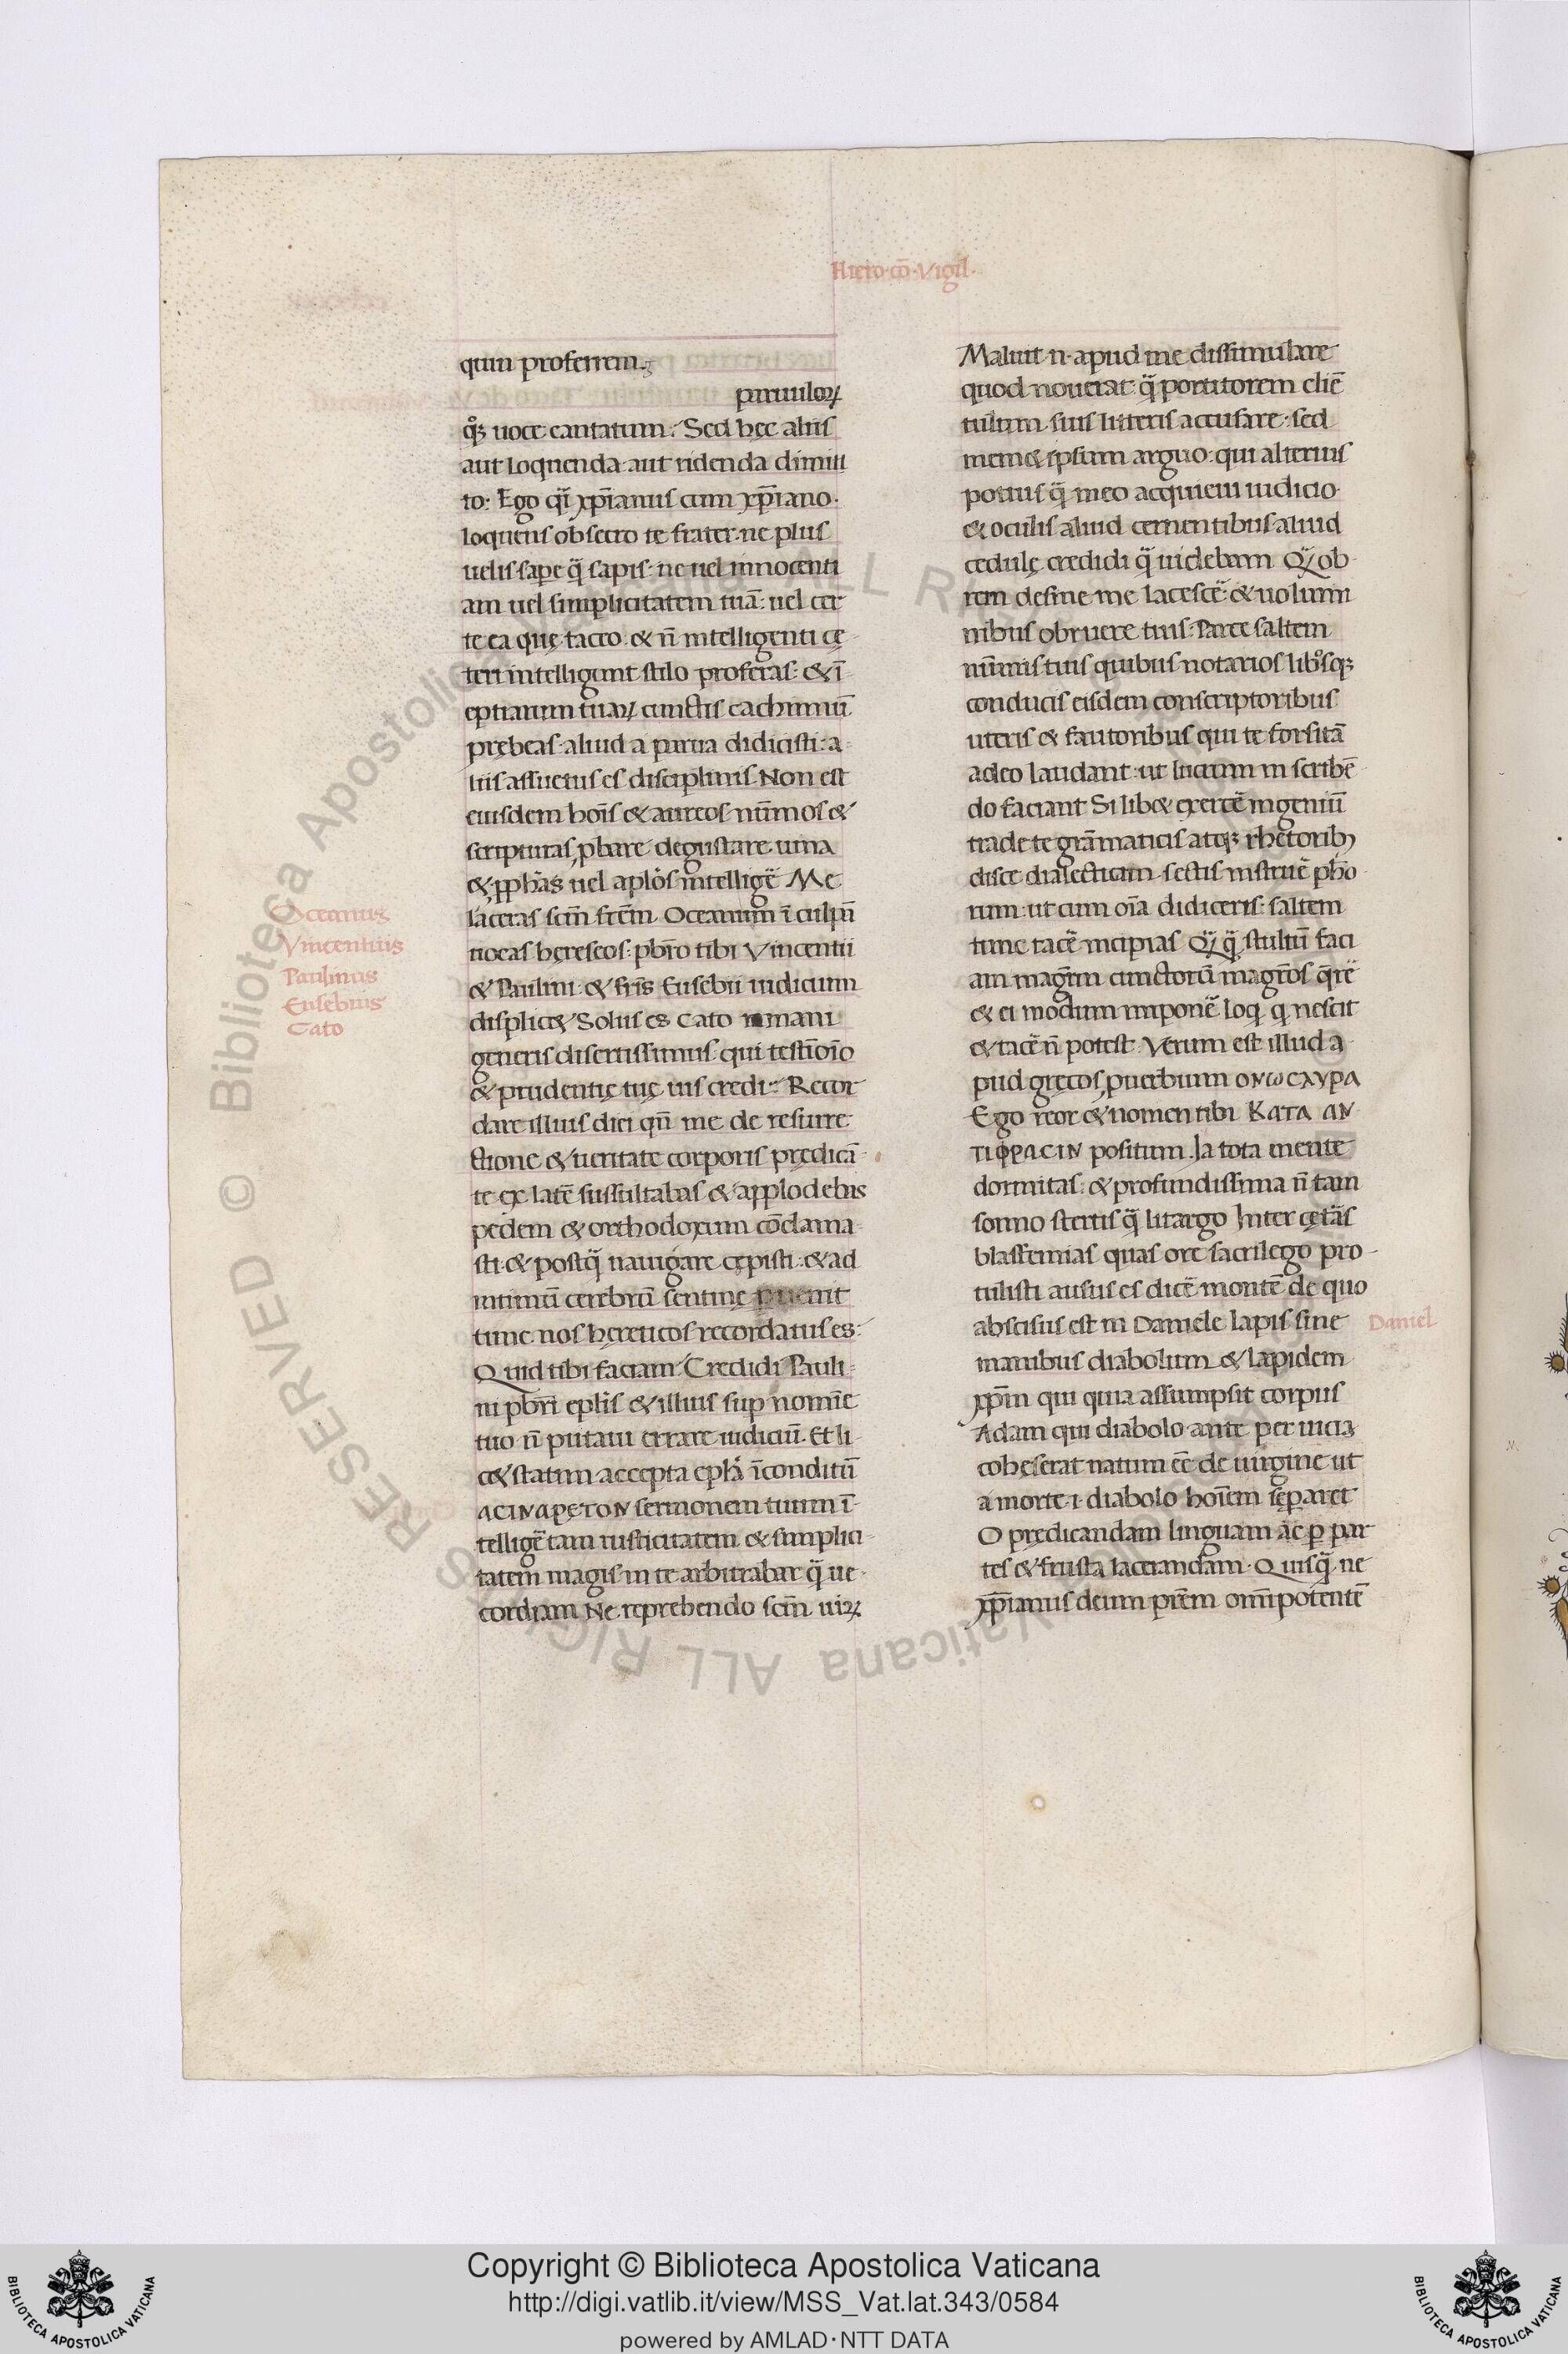 Hiero·cō·Vigil·
quin proferrem.
paruuloꝝ
qͦꝫ uoce cantatum: Sed hęc aliis
aut loquenda aut ridenda dimitt
to: Ego qͥ xp̄ianus cum xp̄iano·
loquens obsecro te frater ne plus
uelis sape q̄ sapis: ne uel innocenti
am uel simplicitatem tuā: uel cer
te ea quę taceo & n̄ intelligenti cę-
teri intelligunt stilo proferas: & ī-
eptiarum tuaꝝ cunctis cachinnū
prębeas: aliud a parua didicisti: a-
liis assuetus es disciplinis Non est
eiusdem hoīs & aureos nūmos &
scripturas ꝓbare degustare uina
& ꝓphās uel aplōs intelligē Me
laceras scm̄ frēm Oceanum ī culpā
uocas hęreseos: pbr̄o tibi Vincentii
& Paulini & fr̄is Eusebii iudicium
displicet Solus es Cato romani
generis disertissimus: qui testīoīo
& prudentię tuę uis credi: Recor
dare illius diei qn̄ me de resurre
ctione & ueritate corporis prędicā-
te ex latē sussultabas & applodebas
pedem & orthodoxum cōclama-
sti: & postq̄ nauigare cępisti: & ad
intimū cerebrū sentinę puenit
tunc nos hęreticos recordatus es:
Quid tibi faciam Credidi Pauli-
ni pbr̄i eplīs & illius sup nomīe
tuo n̄ putaui errare iudiciū. Et li-
cet statim accepta eplā īconditū
ACINAPETON sermonem tuum ī-
telligē tam rusticitatem & simplici-
tatem magis in te arbitrabar q̄ ue-
cordiam Ne reprehendo scm̄ uiꝝ
Oceanus
Vincentius
Paulinus
Eusebius
Cato
Maluit n· apud me dissimulare
quod nouerat q̄ portitorem cliē
tulum suis litteris accusare: sed
memet ipsum arguo: qui alterius
potius q̄ meo acquieui iudicio
& oculis aliud cernentibus aliud
cedulę credidi q̄ uidebam Qͣob
rem desine me lacescē: & uolumi
nibus obruere tuis: Parce saltem
nūmis tuis quibus notarios libͦsqꝫ
conducis eisdem conscriptoribus
uteris & fautoribus qui te forsitā
adeo laudant: ut lucrum in scribē-
do faciant Si libet exercē ingeniū
trade te grāmaticis atqꝫ rhetoribꝫ
disce dialecticam sectis instruē phō-
rum: ut cum oīa didiceris: saltem
tunc tacē incipias Qͣ q̄ stultū faci
am magr̄m cunctorū magr̄os q̄rē
& ei modum imponē loq qͥ nescit
& tacē n̄ potest Verum est illud a-
pud gręcos ꝓuerbium ΟΝωCΛΥΡΑ
Ego reor & nomen tibi ΚΑΤΑ ΑΝ
ΤΙΦΡΑCΙΝ positum. Ia tota mente
dormitas: & profundissima n̄ tam
somno stertis q̄ litargo Inter cętͣs
blasfemias quas ore sacrilego pro-
tulisti ausus es dicē montē de quo
abscisus est in Daniele lapis sine
manibus diabolum & lapidem
xp̄m qui quia assumpsit corpus
Adam qui diabolo ante per uicia
coheserat natum eē de uirgine ut
a morte ·i· diabolo hoīem sęparet
O prędicandam linguam ac p par
tes & frusta lacerandam Quisq̄ ne
xp̄ianus deum prēm omīpotentē
Daniel
Copyright © Biblioteca Apostolica Vaticana
http://digi.vatlib.it/view/MSS_Vat.lat.343/0584
powered by AMLAD·NTT DATA
BIBLIOTECA APOSTOLICA VATICANA
BIBLIOTECA APOSTOLICA VATICANA
© Biblioteca Apostolica Vaticana ALL RIGHTS RESERVED